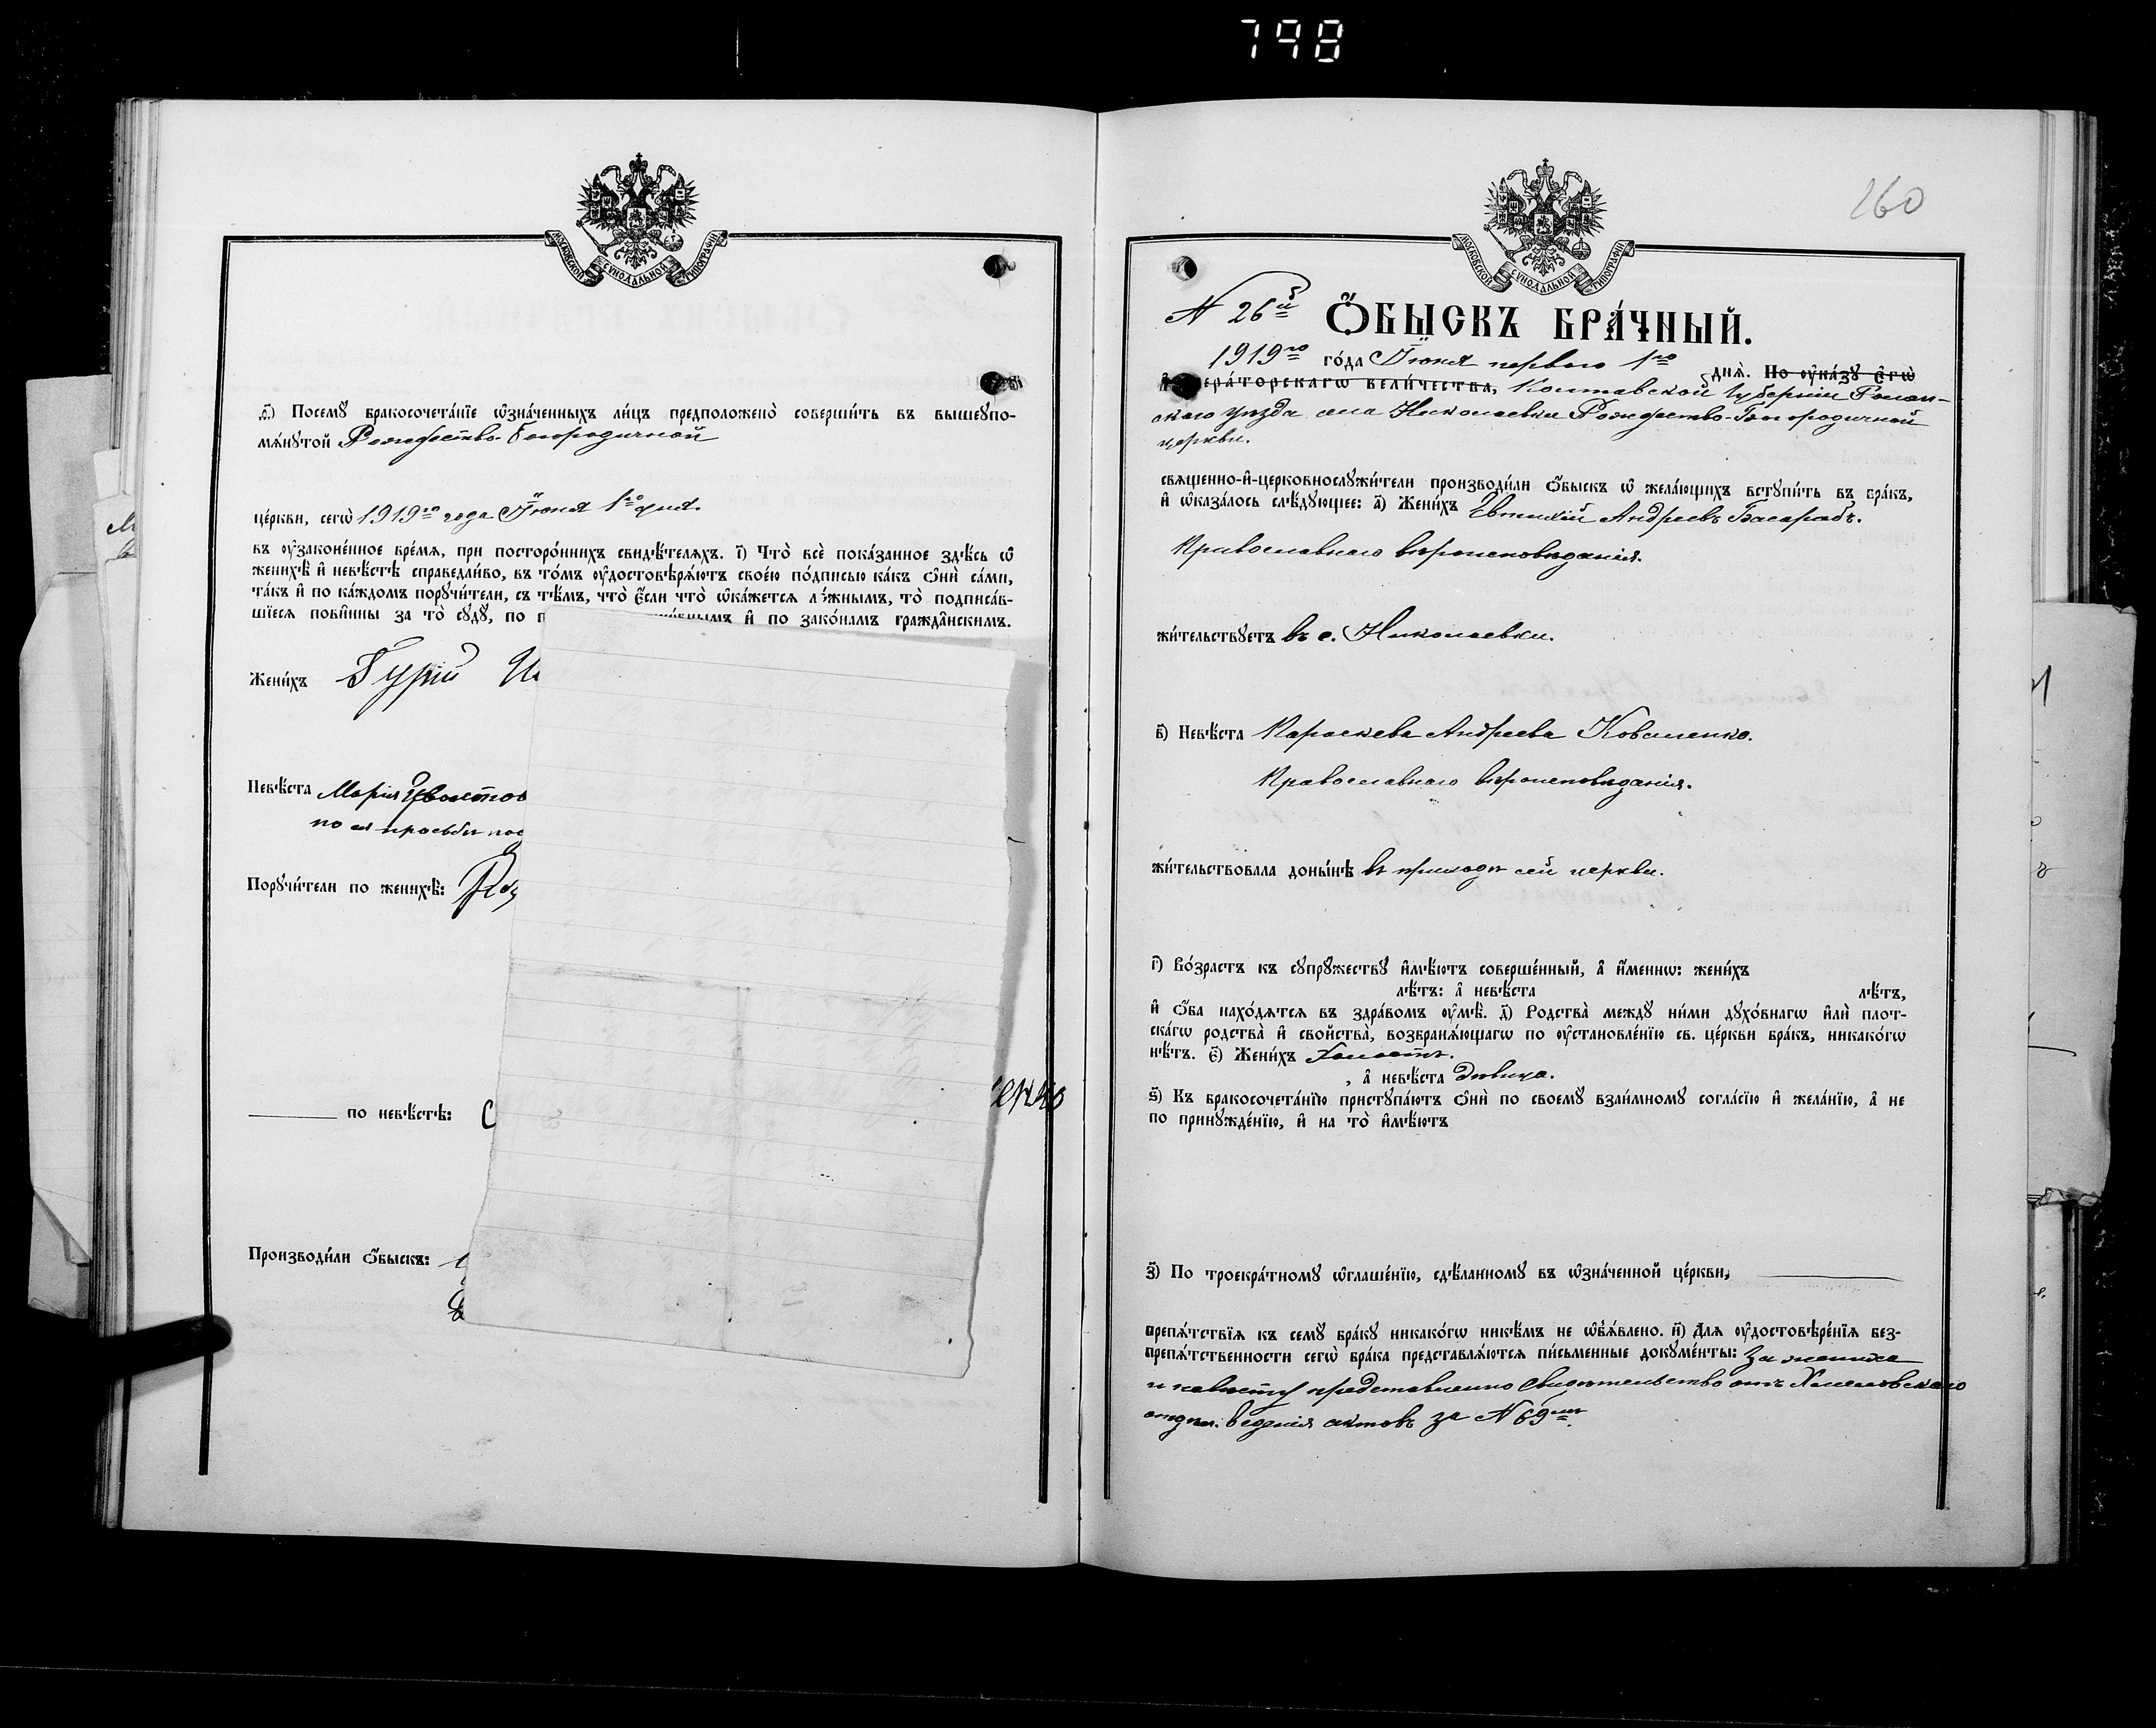 798
МОСКОВСКОЙ СѴНОДАЛЬНОЙ ТИПОГРАФІИ
ѳ҃) Посемꙋ бракосочетаніе ѡзначенныхъ лицъ предположено совершить въ вышеꙋпо-
мѧнꙋтой Рождество-Богородичной
церкви, сегѡ 1919го года Іюня 1го дня.
въ ᲂузаконенное времѧ, при постороннихъ свидѣтелѧхъ. і҃) Что всѐ показанное здѣсь ѡ
женихѣ и невѣстѣ справедливо, въ томъ ᲂудостовѣрѧютъ своею подписью какъ ѻни сами,
такъ и по каждомъ порꙋчители, съ тѣмъ, что если что ѡкажется ложнымъ, то подписав-
шіесѧ повинны за то сꙋдꙋ, по п вилнымъ и по законамъ гражданскимъ.
Женихъ Гурій
Невѣста Марія
по ея просьбѣ
Порꙋчители по женихѣ:
енко
по невѣстѣ: С
Производили ѻбыскъ:
160
МОСКОВСКОЙ СѴНОДАЛЬНОЙ ТИПОГРАФІИ
N 26й ѺБЫСКЪ БРАЧНЫЙ.
1919го года Іюня первого 1го днѧ. По ᲂуказꙋ Егѡ
Императорскагѡ величества, Полтавской Губерніи Ромен-
скаго уѣзда села Николаевки Рождество-Богородичной
церкви.
свѧщенно-и-церковнослꙋжители производили ѻбыскъ ѡ желающихъ встꙋпить въ бракъ,
и ѡказалось слѣдꙋющее: а҃) Женихъ Евтихій Андреевъ Басарабъ.
Православнаго вѣроисповѣданія.
жительствꙋетъ въ с. Николаевки.
в҃) Невѣста Параскева Андреева Коваленко.
Православнаго вѣроисповѣданія.
жительствовала донынѣ въ приходѣ сей церкви.
г҃) Возрастъ къ сꙋпрꙋжествꙋ имѣютъ совершенный, а именнѡ: женихъ
лѣтъ: а невѣста лѣтъ,
и ѻба находѧтсѧ въ здравомъ ᲂумѣ. д҃) Родства междꙋ ними дꙋховнагѡ или плот-
скагѡ родства и свойства, возбранѧющагѡ по ᲂустановленію св. церкви бракъ, никакогѡ
нѣтъ. є҃) Женихъ Холостъ.
, а невѣста Дѣвица.
ѕ҃) Къ бракосочетанію пристꙋпаютъ ѻни по своемꙋ взаимномꙋ согласію и желанію, а не
по принꙋжденію, и на то имѣютъ
з҃) По троекратномꙋ ѡглашенію, сдѣланномꙋ въ ѡзначенной церкви,
препѧтствіѧ къ семꙋ бракꙋ никакогѡ никѣмъ не ѡбъѧвлено. и҃) Длѧ ᲂудостовѣреніѧ без-
препѧтственности сегѡ брака представлѧютсѧ письменные докꙋменты: За жениха
и невѣсту представленно свидѣтельство отъ Хмеловскаго
отдѣл. веденія актовъ за N 69мъ.